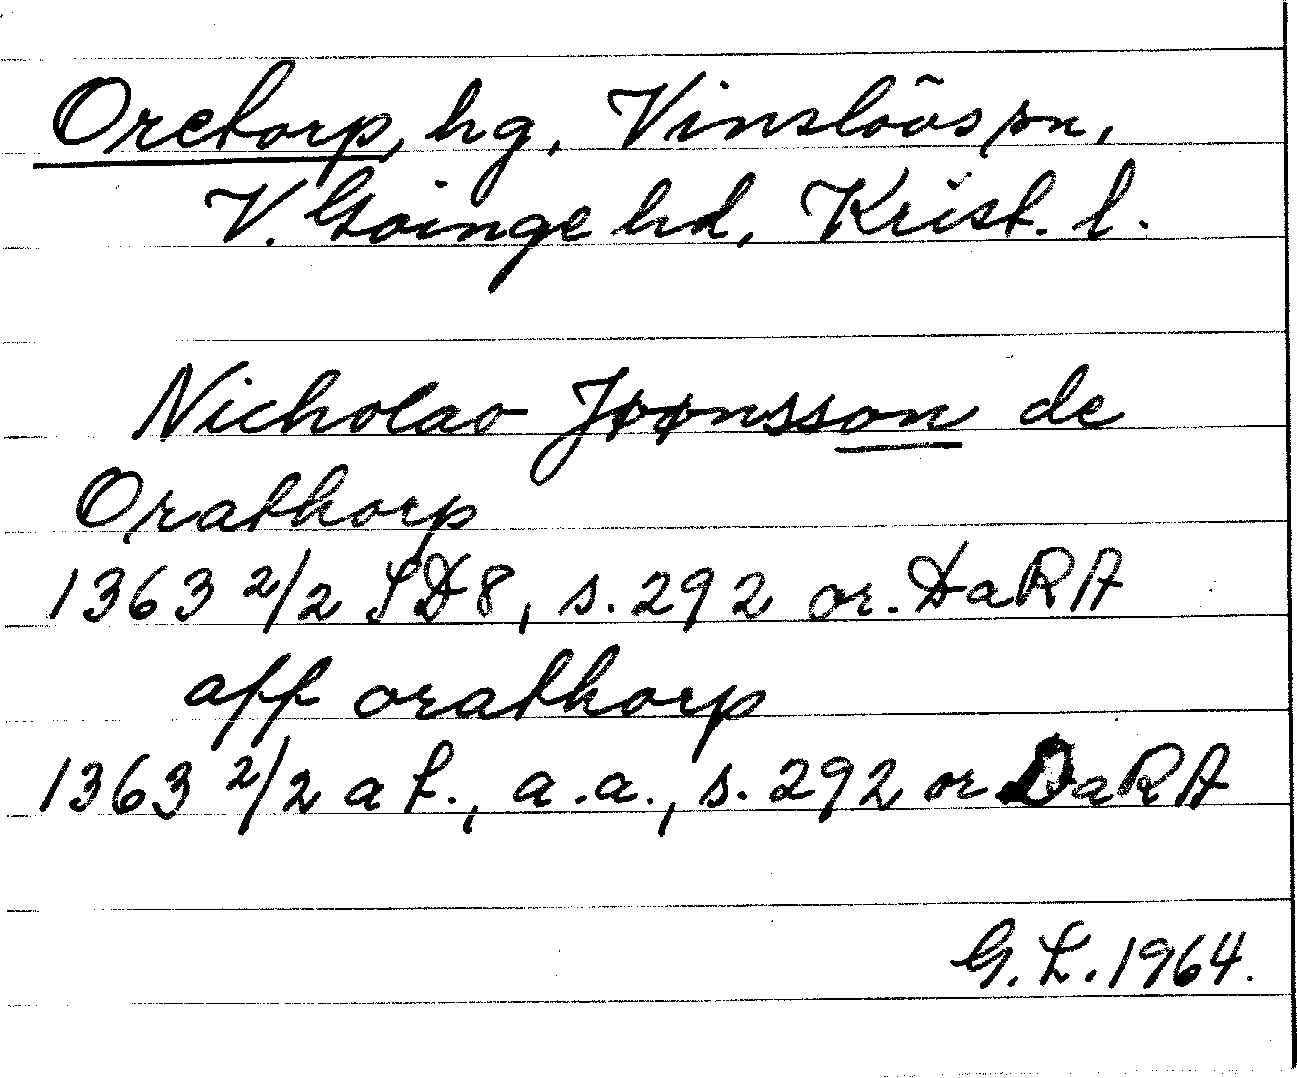 Oretorp, hg, Vinslövs sn,
V. Göinge hd, Krist. l.
Nicholao JØØnssson de
Orathorp
1363 2/2 SD8, s. 292 or. DaRA
aff orathorp
1363 2/2 a t., a.a., s. 292 or DaRA
G. L. 1964.